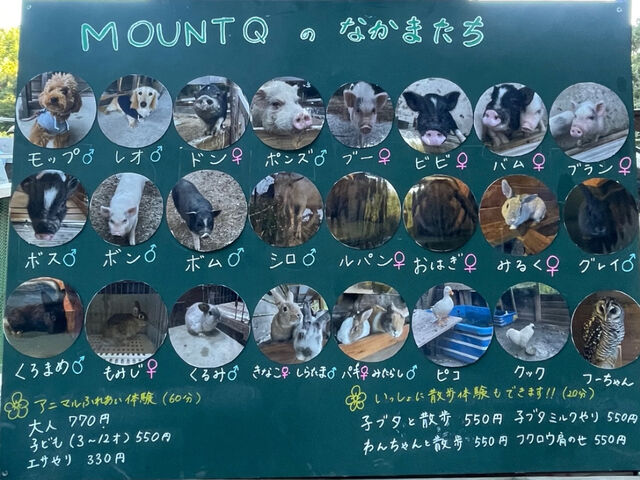 MOUNTQ の なかまたち
モップ♂ レオ♂ ドン♀ ポンズ♂ ブー♀ ビビ♀ バム♀ ブラン♀
ボス♂ ボン♂ ボム♂ シロ♂ ルパン♀ おはぎ♀ みるく♀ グレイ♂
くろまめ♂ もみじ♀ くるみ♂ きなこ♀ しらたま♂ みたらし♂ ピコ クック フーちゃん
アニマルふれあい体験 (60分)
大人 770円
子ども (3~12才) 550円
エサやり 330円
いっしょに散歩体験もできます!! (20分)
子ブタと散歩 550円 子ブタミルクやり 550円
わんちゃんと散歩 550円 フクロウ肩のせ 550円